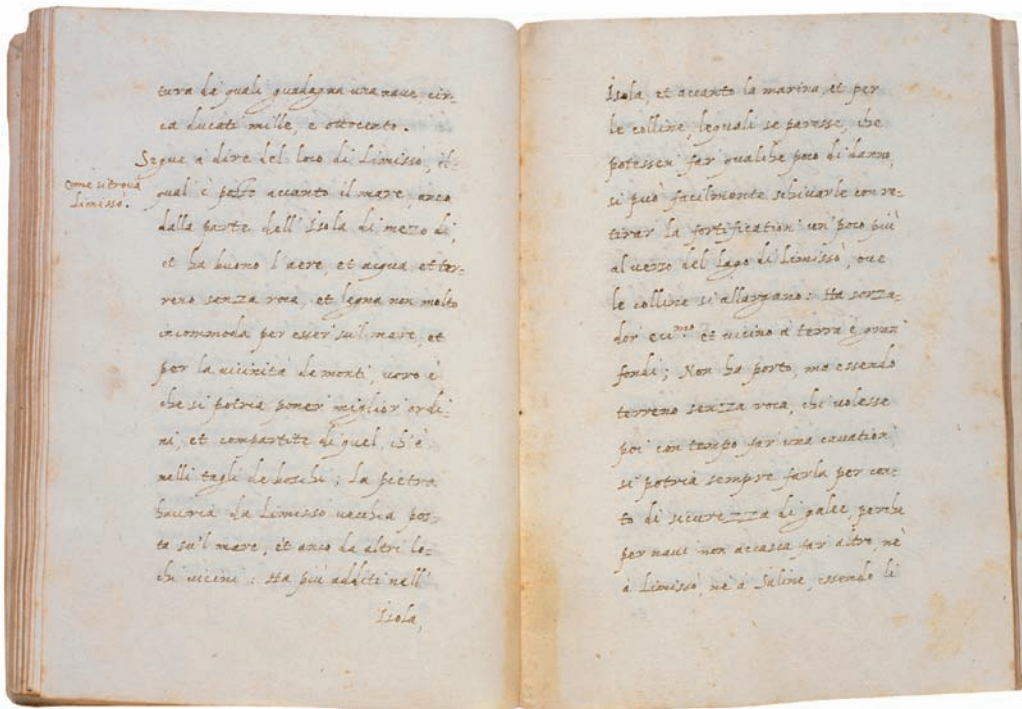 tura de quali guadagna una naue, cir-
ca ducati mille, e ottocento.
Segue a dire del loco di Limissò, il-
Come si troua
Limissò.
qual è posto accanto il mare, anco
dalla parte dell'Isola di mezo dì,
et ha buono l'aere, et acqua, et ter-
reno senza roca, et legna non molto
incommoda per esser su'l mare, et
per la uicinità de monti, uero è
che si potria poner miglior ordi-
ni, et compartite di quel, ch'è
nelli tagli de boschi; La pietra
hauria da Limissò uecchia pos-
ta su'l mare, et anco da altri lo-
chi uicini: Ha più additi nell'
Isola,
Isola, et accanto la marina, et per
le colline, lequali se paresse, che
potessen far qualche poco di danno,
si può facilmente schiuarle con re-
tirar la fortification un poco più
al uerso del lago di Limissò, oue
le colline si allargano: Ha sorza-
dor et uicino a terra è gran
fondi; Non ha porto, ma essendo
terreno senza roca, chi uolesse
poi con tempo far una cauation,
si potria sempre farla per con-
to di sicurezza di galee, perche
per naue non accasca far altro, nè
à Limissò, nè à Saline, essendo li